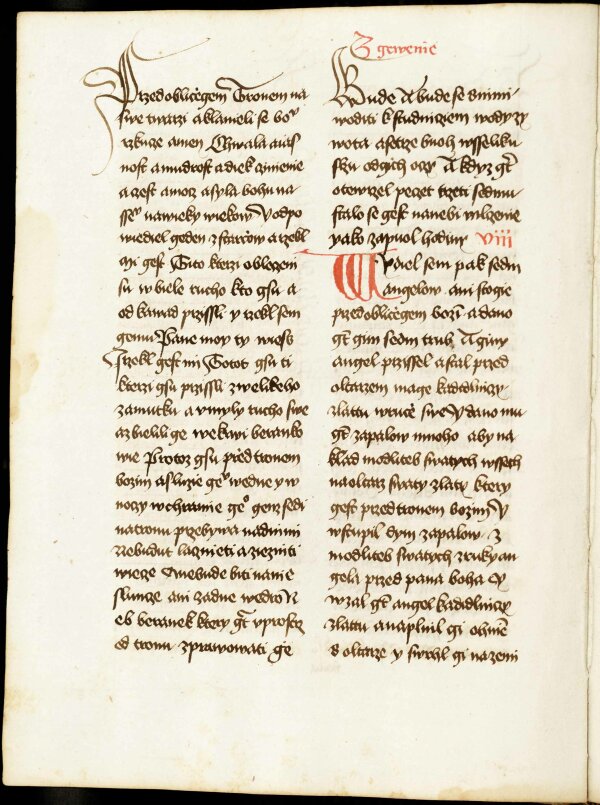 Zgewenie
Przed obliċegem Tronem na
swe twarzi a klanieli se bohu
rzkuze amen Chwala a ias
nost a mudrost a diek czinienie
a czest a mocz a syla bohu na
ssem na wieky wiekow Y odpo
wiediel geden z starcow a rzekl
mi gest Tito kterzi obleczeni
su w biele rucho kto gsu a
od kawad przissli y rzekl sem
gemu Pane moy ty wiess
I rzekl gest mi Totot gsu ti
kterzi gsu przissli z welikeho
zamutku a vmyly rucho swe
a zbielili ge we krwi beranko
wie Protoz gsu pred tronem
bozim a sluzie geᵒ we dne y w
noczy w chramie geᵒ genz sedi
na tronu przebywa nad nimi
Nebudut lacznieti a zieziniti
wiecze A nebude biti na nie
slunce ani zadne wedro N
eb beranek ktery gt vprostrz
ed tronu zprawowati ge
Bude A bude se s nimi
woditi k studniciem wody zy
wota a setrze buoh wsseliku
slzu od gich oczy A kdyz gt
otewrzel peczet trzeti sedmu
stalo se gest na nebi mlczenie
yako za puol hodiny VIII
Vydiel sem pak sedm
angelow ani stogie
przed obliċegem bozim a dano
gt gim sedm trub A giny
angel przissel a stal przed
oltarzem mage kadidlniczy
zlattu w rucze swe Y dano mu
gt zapalow mnoho aby na
klad modliteb swatych wssech
na oltarz swaty zlaty ktery
gest przed tronem bozim Y
wstupil dym zapalow z
modliteb swatych z ruky an
gela przed pana boha Y
wzal gt angel kadidlniczy
zlattu a naplnil gi ohnem
s oltarze y swrhl gi na zemi